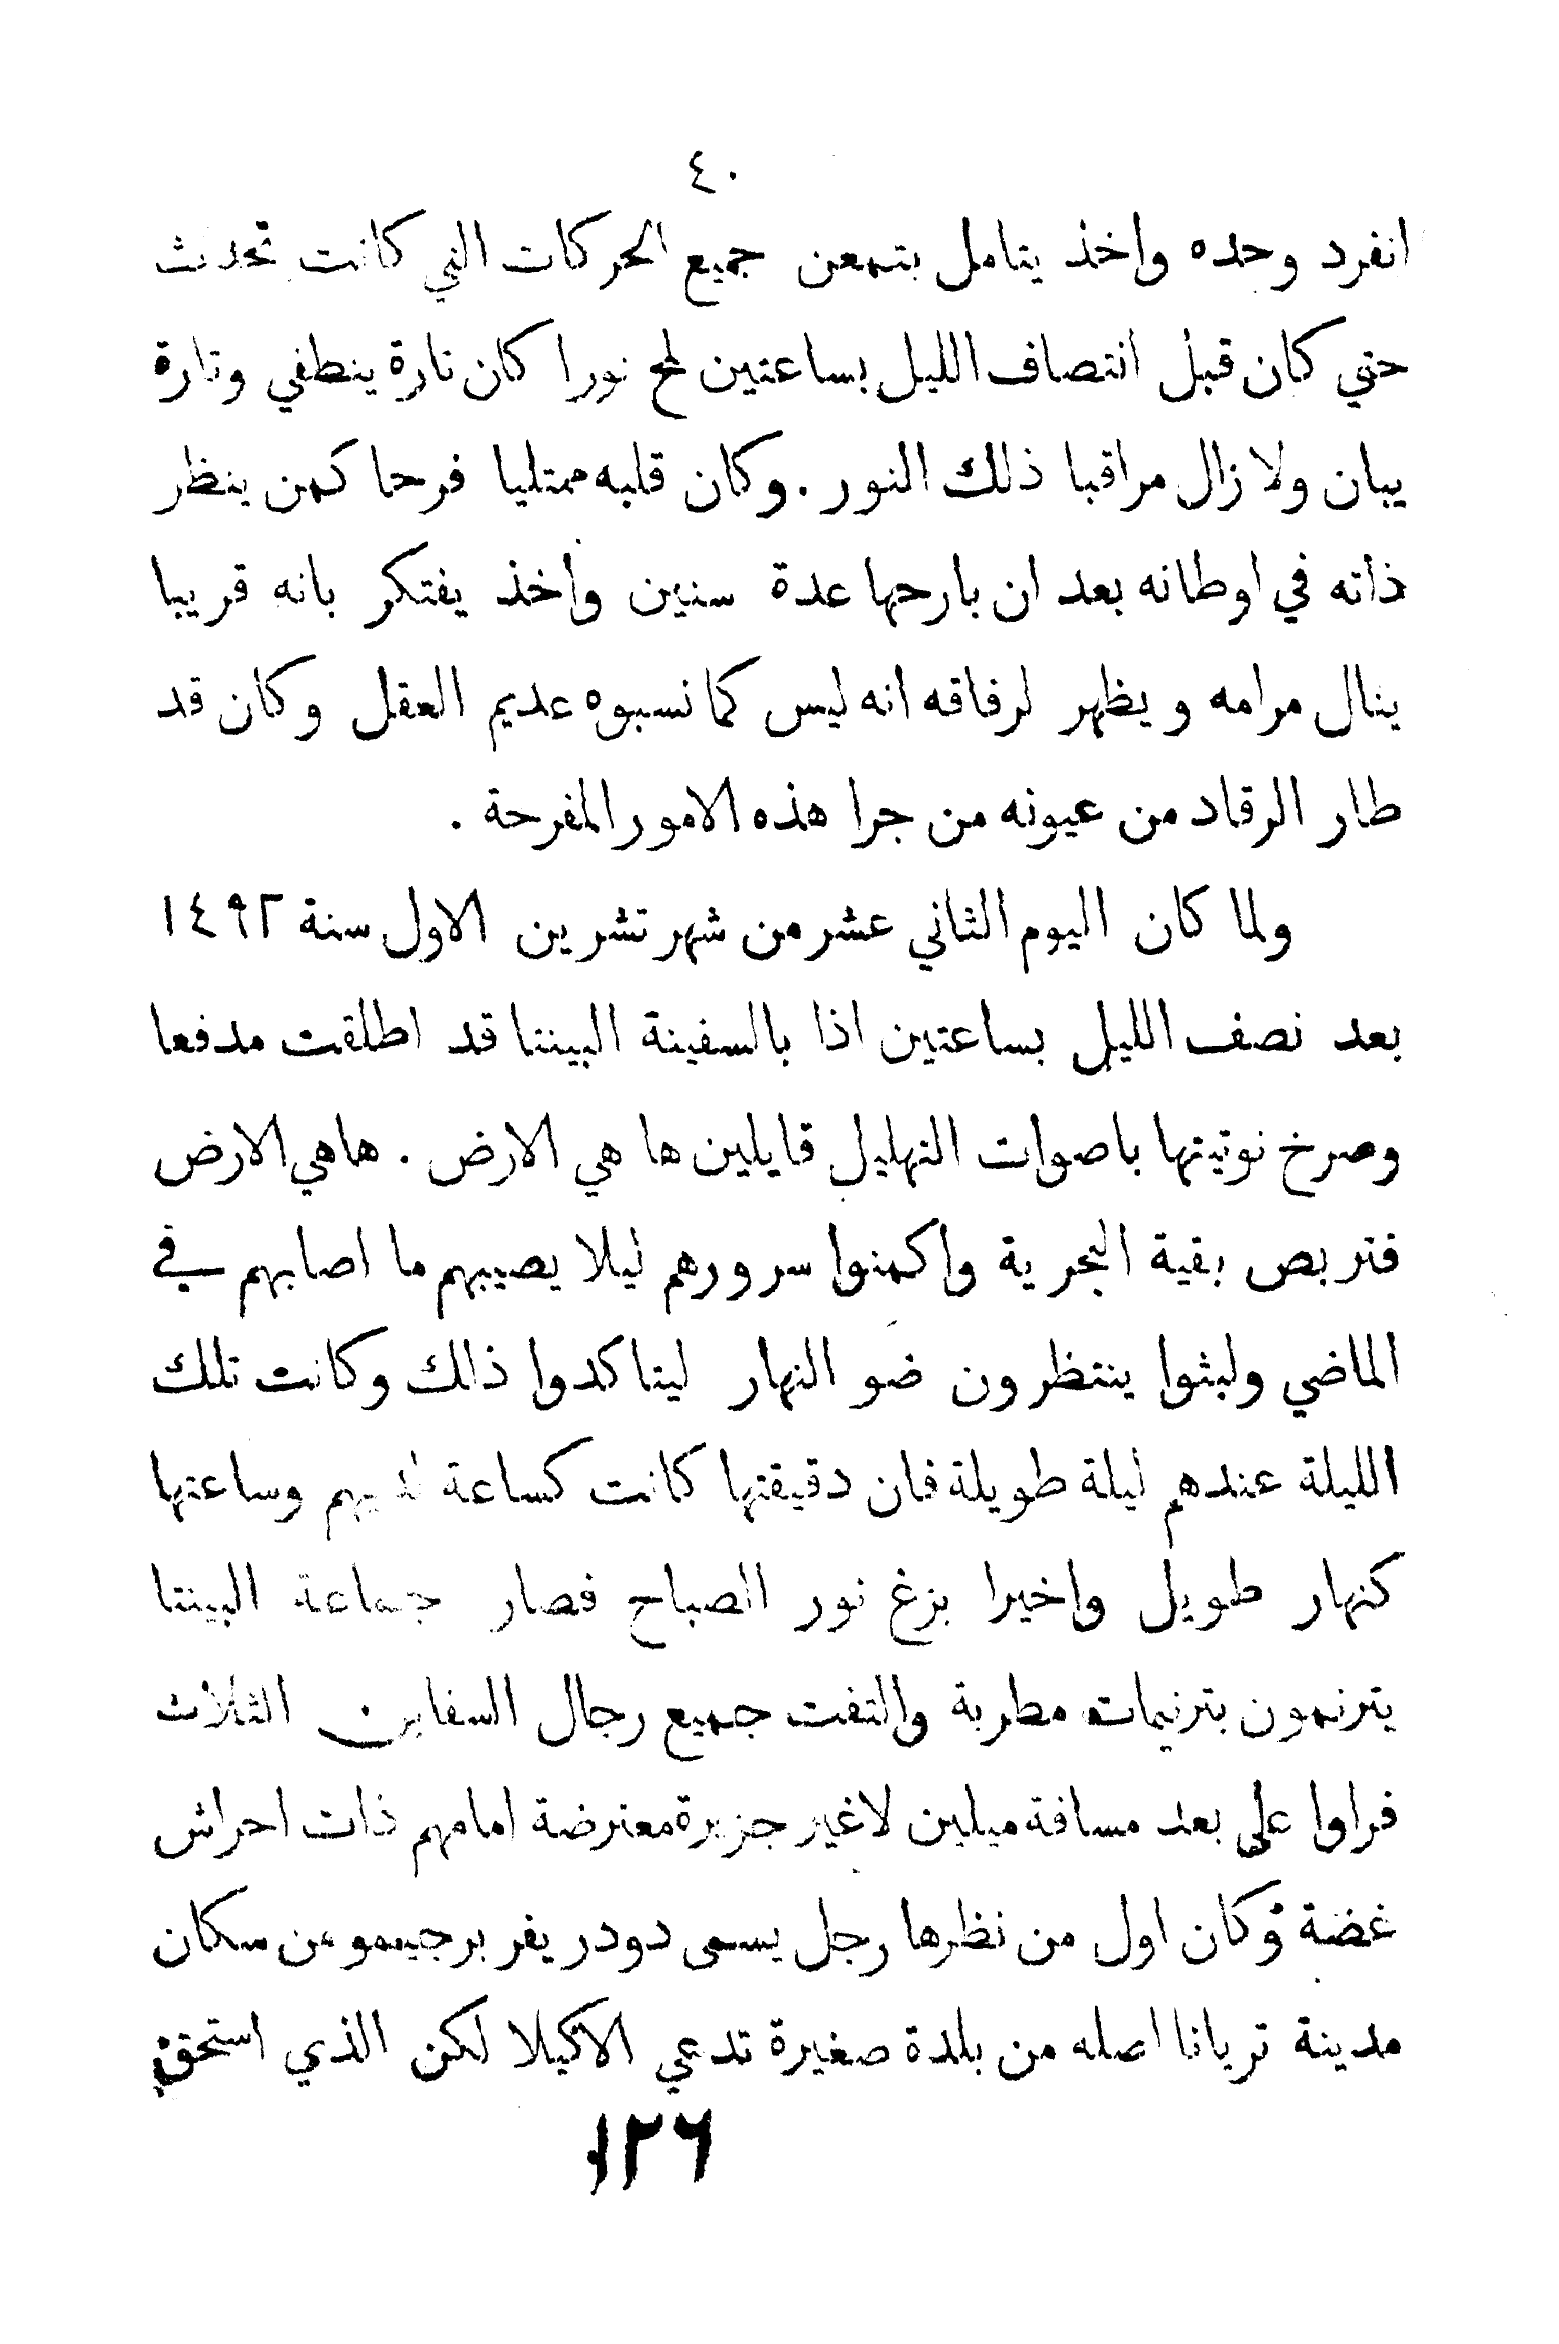 ٤٠
انفرد وحده واخذ يتامل بتمعن جميع الحركات التي كانت تحدث
حتي كان قبل انتصاف الليل بساعتين لمح نورا كان تارة ينطفي وتارة
يبان ولا زال مراقبا ذلك النور . وكان قلبه ممتليا فرحا كمن ينظر
ذاته في اوطانه بعد ان بارحها عدة سنين واخذ يفتكر بانه قريبا
ينال مرامه ويظهر لرفاقه انه ليس كما نسبوه عديم العقل وكان قد
طار الرقاد من عيونه من جرا هذه الامور المفرحة .
ولما كان اليوم الثاني عشر من شهر تشرين الاول سنة ١٤٩٢
بعد نصف الليل بساعتين اذا بالسفينة البينتا قد اطلقت مدفعا
وصرخ نوتيتها باصوات التهليل قايلين ها هي الارض . هاهي الارض
فتربص بقية البحرية واكمنوا سرورهم ليلا يصيبهم ما اصابهم في
الماضي ولبثوا ينتظرون ضو النهار ليتاكدوا ذلك وكانت تلك
الليلة عندهم ليلة طويلة فان دقيقتها كانت كساعة لديهم وساعتها
كنهار طويل واخيرا بزغ نور الصباح فصار جماعة البينتا
يترنمون بترنيمات مطربة والتفت جميع رجال السفاين الثلاث
فراوا على بعد مسافة ميلين لاغير جزيرة معترضة امامهم ذات احراش
غضة وكان اول من نظرها رجل يسمى دودريفر برجيمو من سكان
مدينة تريانا اصله من بلدة صغيرة تدعي الاكيلا لكن الذي استحق
١٢٦